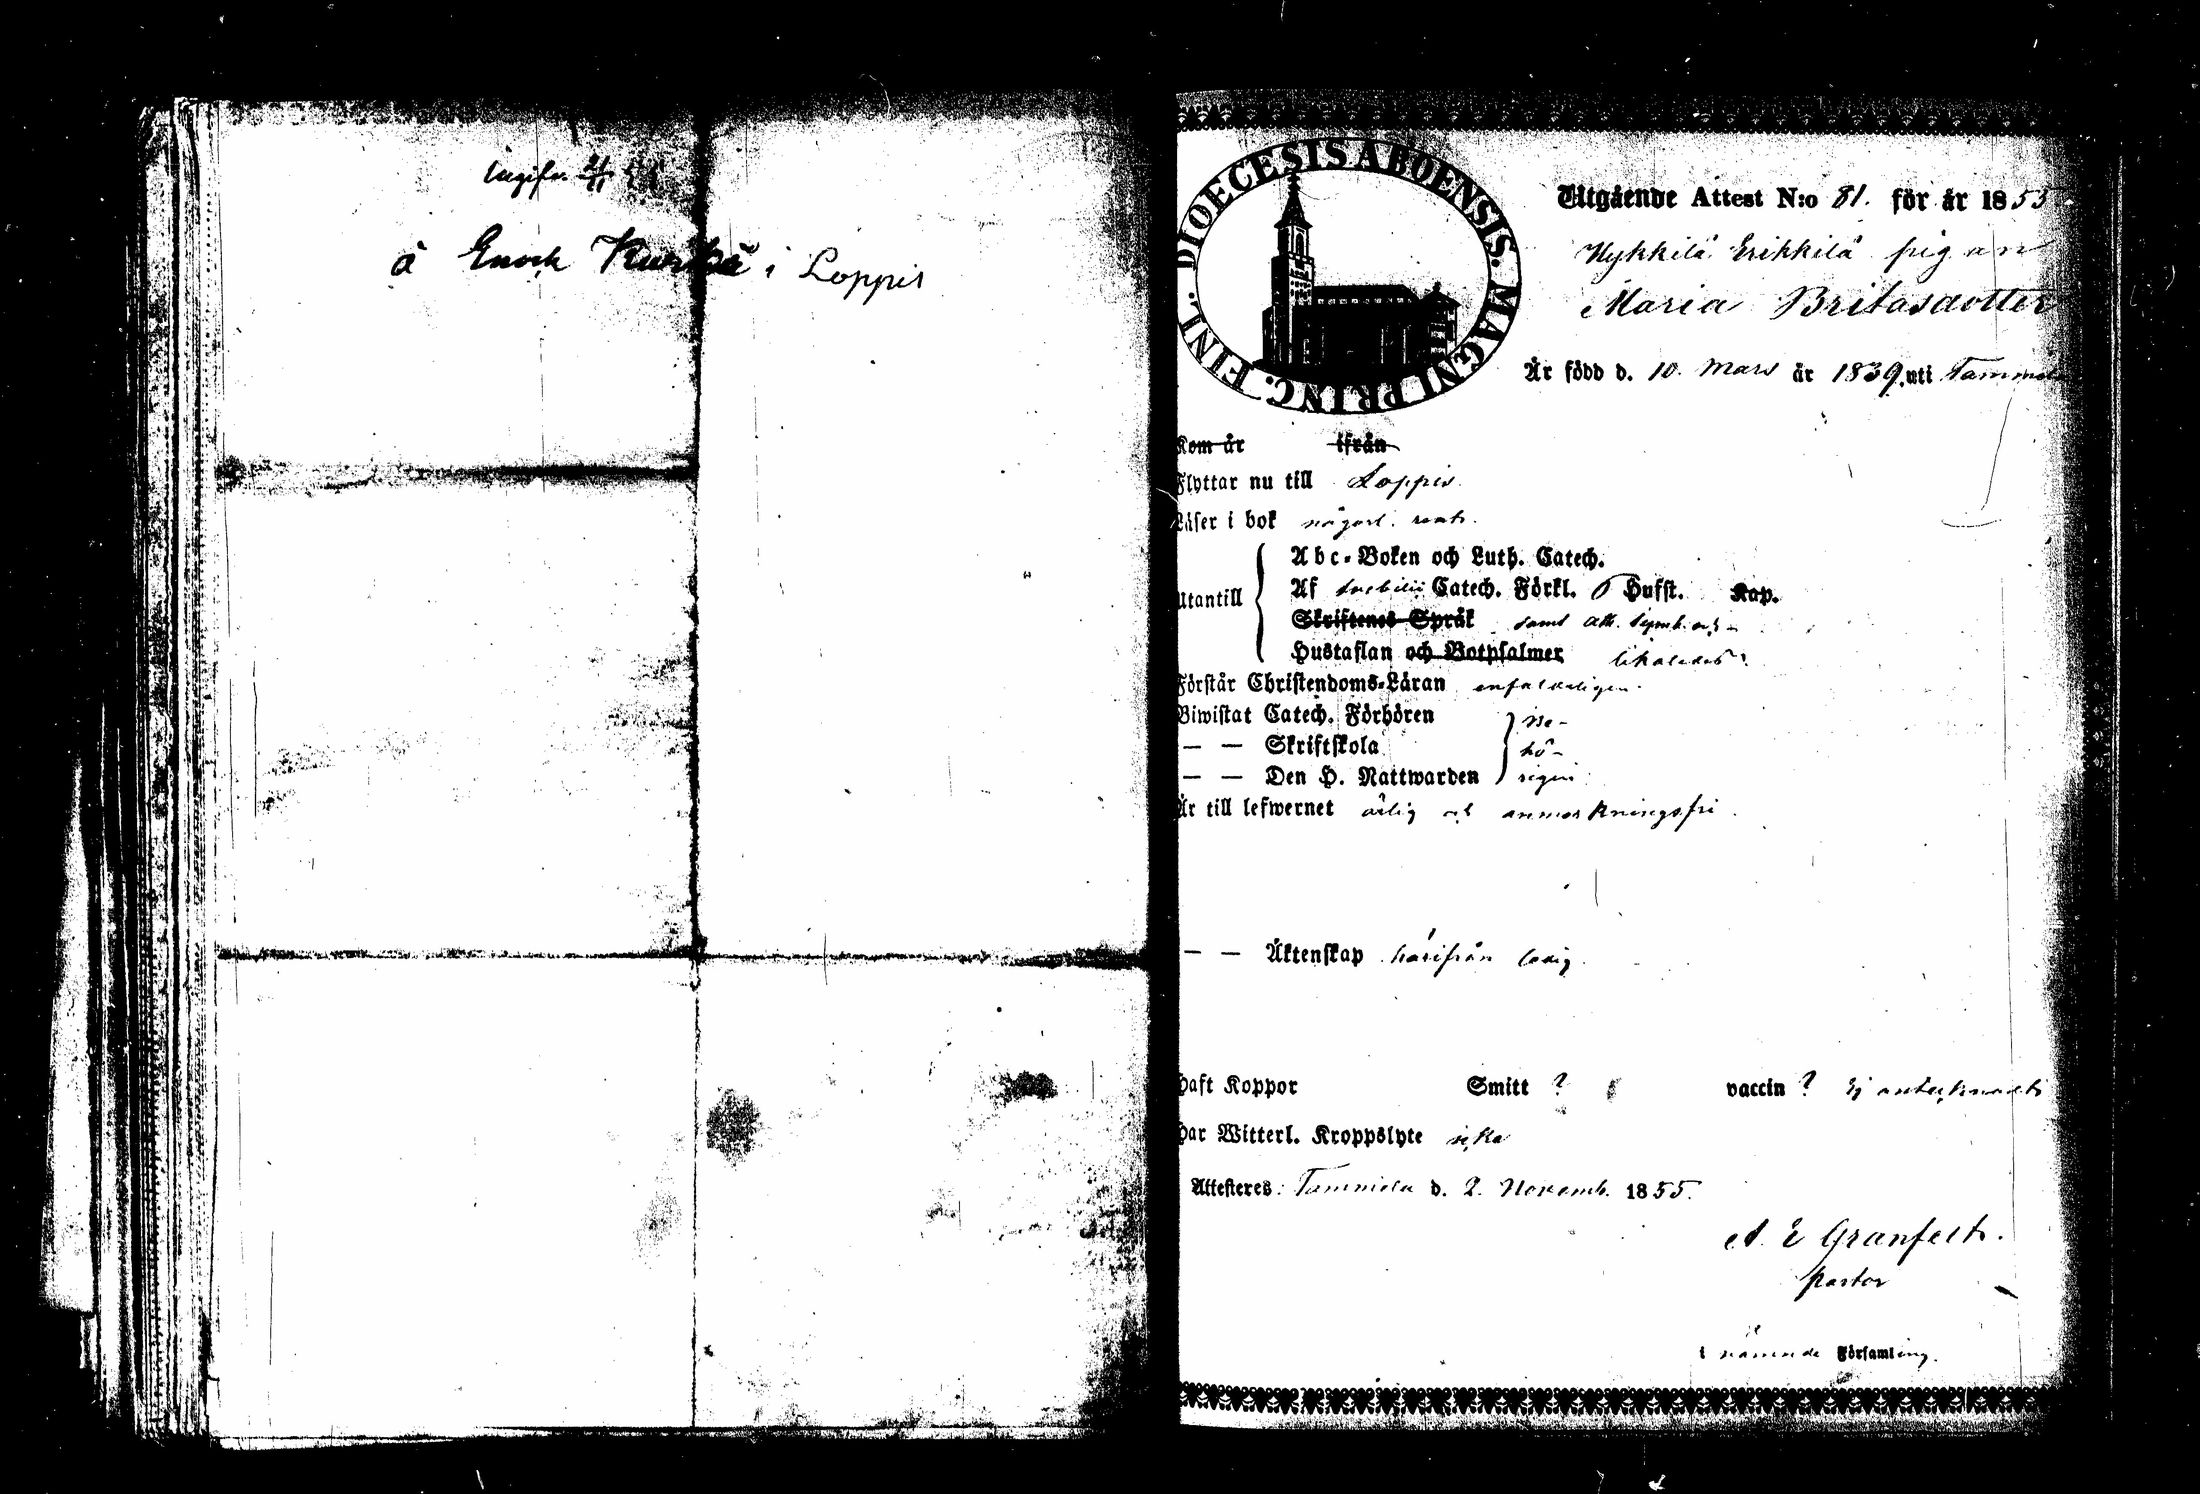 Ingifv. 21/11 55
à Enoch Kurkä i Loppis
DIOECESIS ABOENSIS. MAGNI PRINC. FINL.
Utgående Attest N:o 81. för år 1855
Kykkilä Erikkilä pigan
Maria Britasdotter
Är född d. 10. Mars år 1839. uti Tammela
Kom år ifrån
Flyttar nu till Loppis.
Läser i bok någorl. rent.
Utantill
Abc-Boken och Luth. Catech.
Af Svebilii Catech. Förkl. 6 Hufst. Kap.
Skriftenes Språk samt Ath. Symb. och
Hustaflan och Botpsalmer likaledes.
Förstår Christendoms-Läran enfaldeligen.
Biwistat Catech. Förhören } ve-
— — Skriftskola hö-
— — Den H. Nattwarden rigen
Är till lefwernet ärlig och anmärkningsfri.
— — Äktenskap härifrån ledig.
Haft Koppor Smitt ? vaccin ? Ej antecknadt
Har Witterl. Kroppslyte icke
Attesteres: Tammela d. 2. Novemb. 1855.
A. E Granfelt.
Pastor
i nämnde Församling.